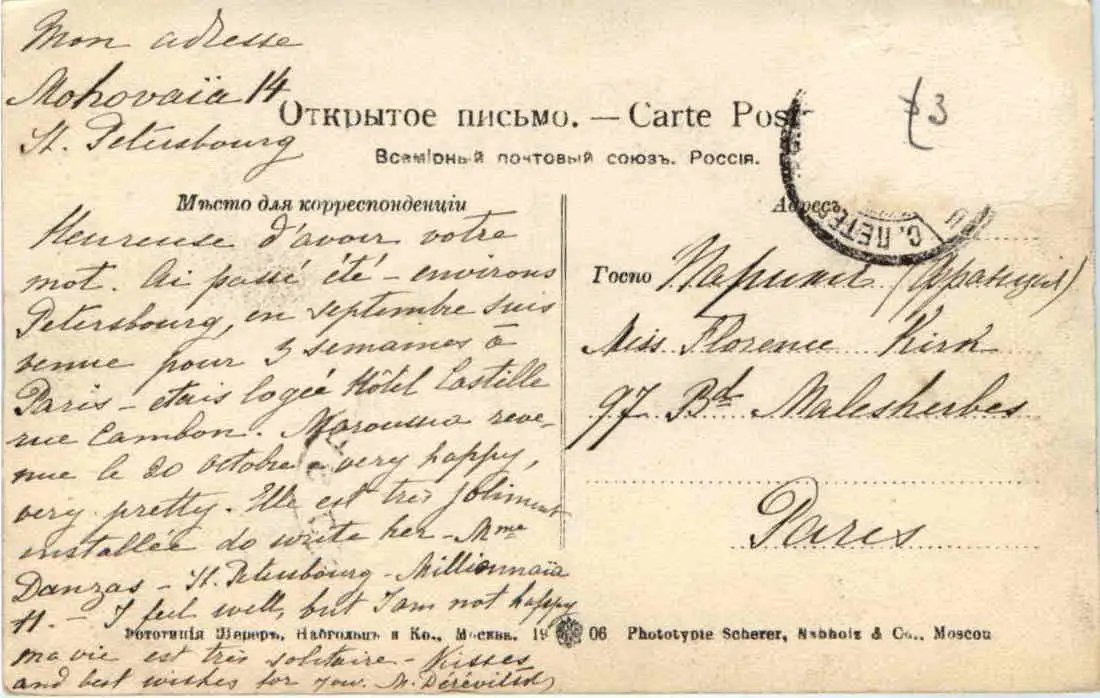 Mon adresse
Mohovaïa 14
St. Petersbourg
Открытое письмо. — Carte Post
Всемірный почтовый союзъ. Россія.
Мѣсто для корреспонденціи
Heureuse d'avoir votre
mot. Ai passé été - environs
Petersbourg, en septembre suis
venue pour 3 semaines à
Paris - étais logée Hôtel Castille
rue Cambon. Maroussia reve-
nue le 20 octobre very happy,
very pretty. Elle est très joliment
installée do write her - Mme
Danzas - St. Petersbourg - Millionnaïa
11. - I feel well, but I am not happy
ma vie est très solitaire - Kisses
and best wishes for you. M.
73
С. ПЕТЕ
Адресъ
Госпо Парижъ (Франція)
Miss Florence Kirk
97 Bd Malesherbes
Paris
Фототипія Шереръ, Набгольцъ и Ко., Москва. 1906 Phototypie Scherer, Nabholz & Co., Moscou